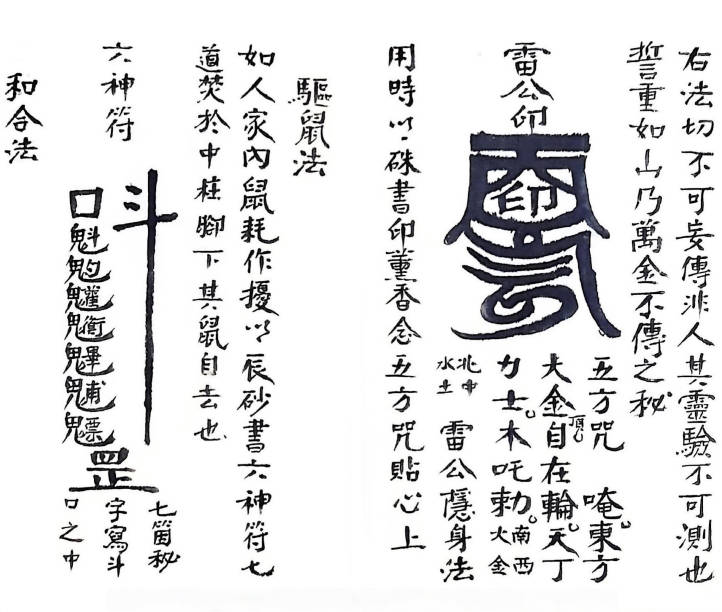 右法切不可妄傳非人其靈驗不可測也
誓重如山乃萬金不傳之秘
雷公印
印
五方咒　唵東方
大金頂自在輪天丁
力士木吒勅南西火金
北中水土
雷公隱身法
用時以硃書印薰香念五方咒貼心上
驅鼠法
如人家內鼠耗作擾以辰砂書六神符七
道焚於中柱腳下其鼠自去也
六神符
斗
口魁魓魒
罡
七箇秘
字寫斗
口之中
和合法